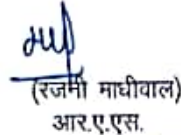 (रजमी माधीवाल)
आर.ए.एस.